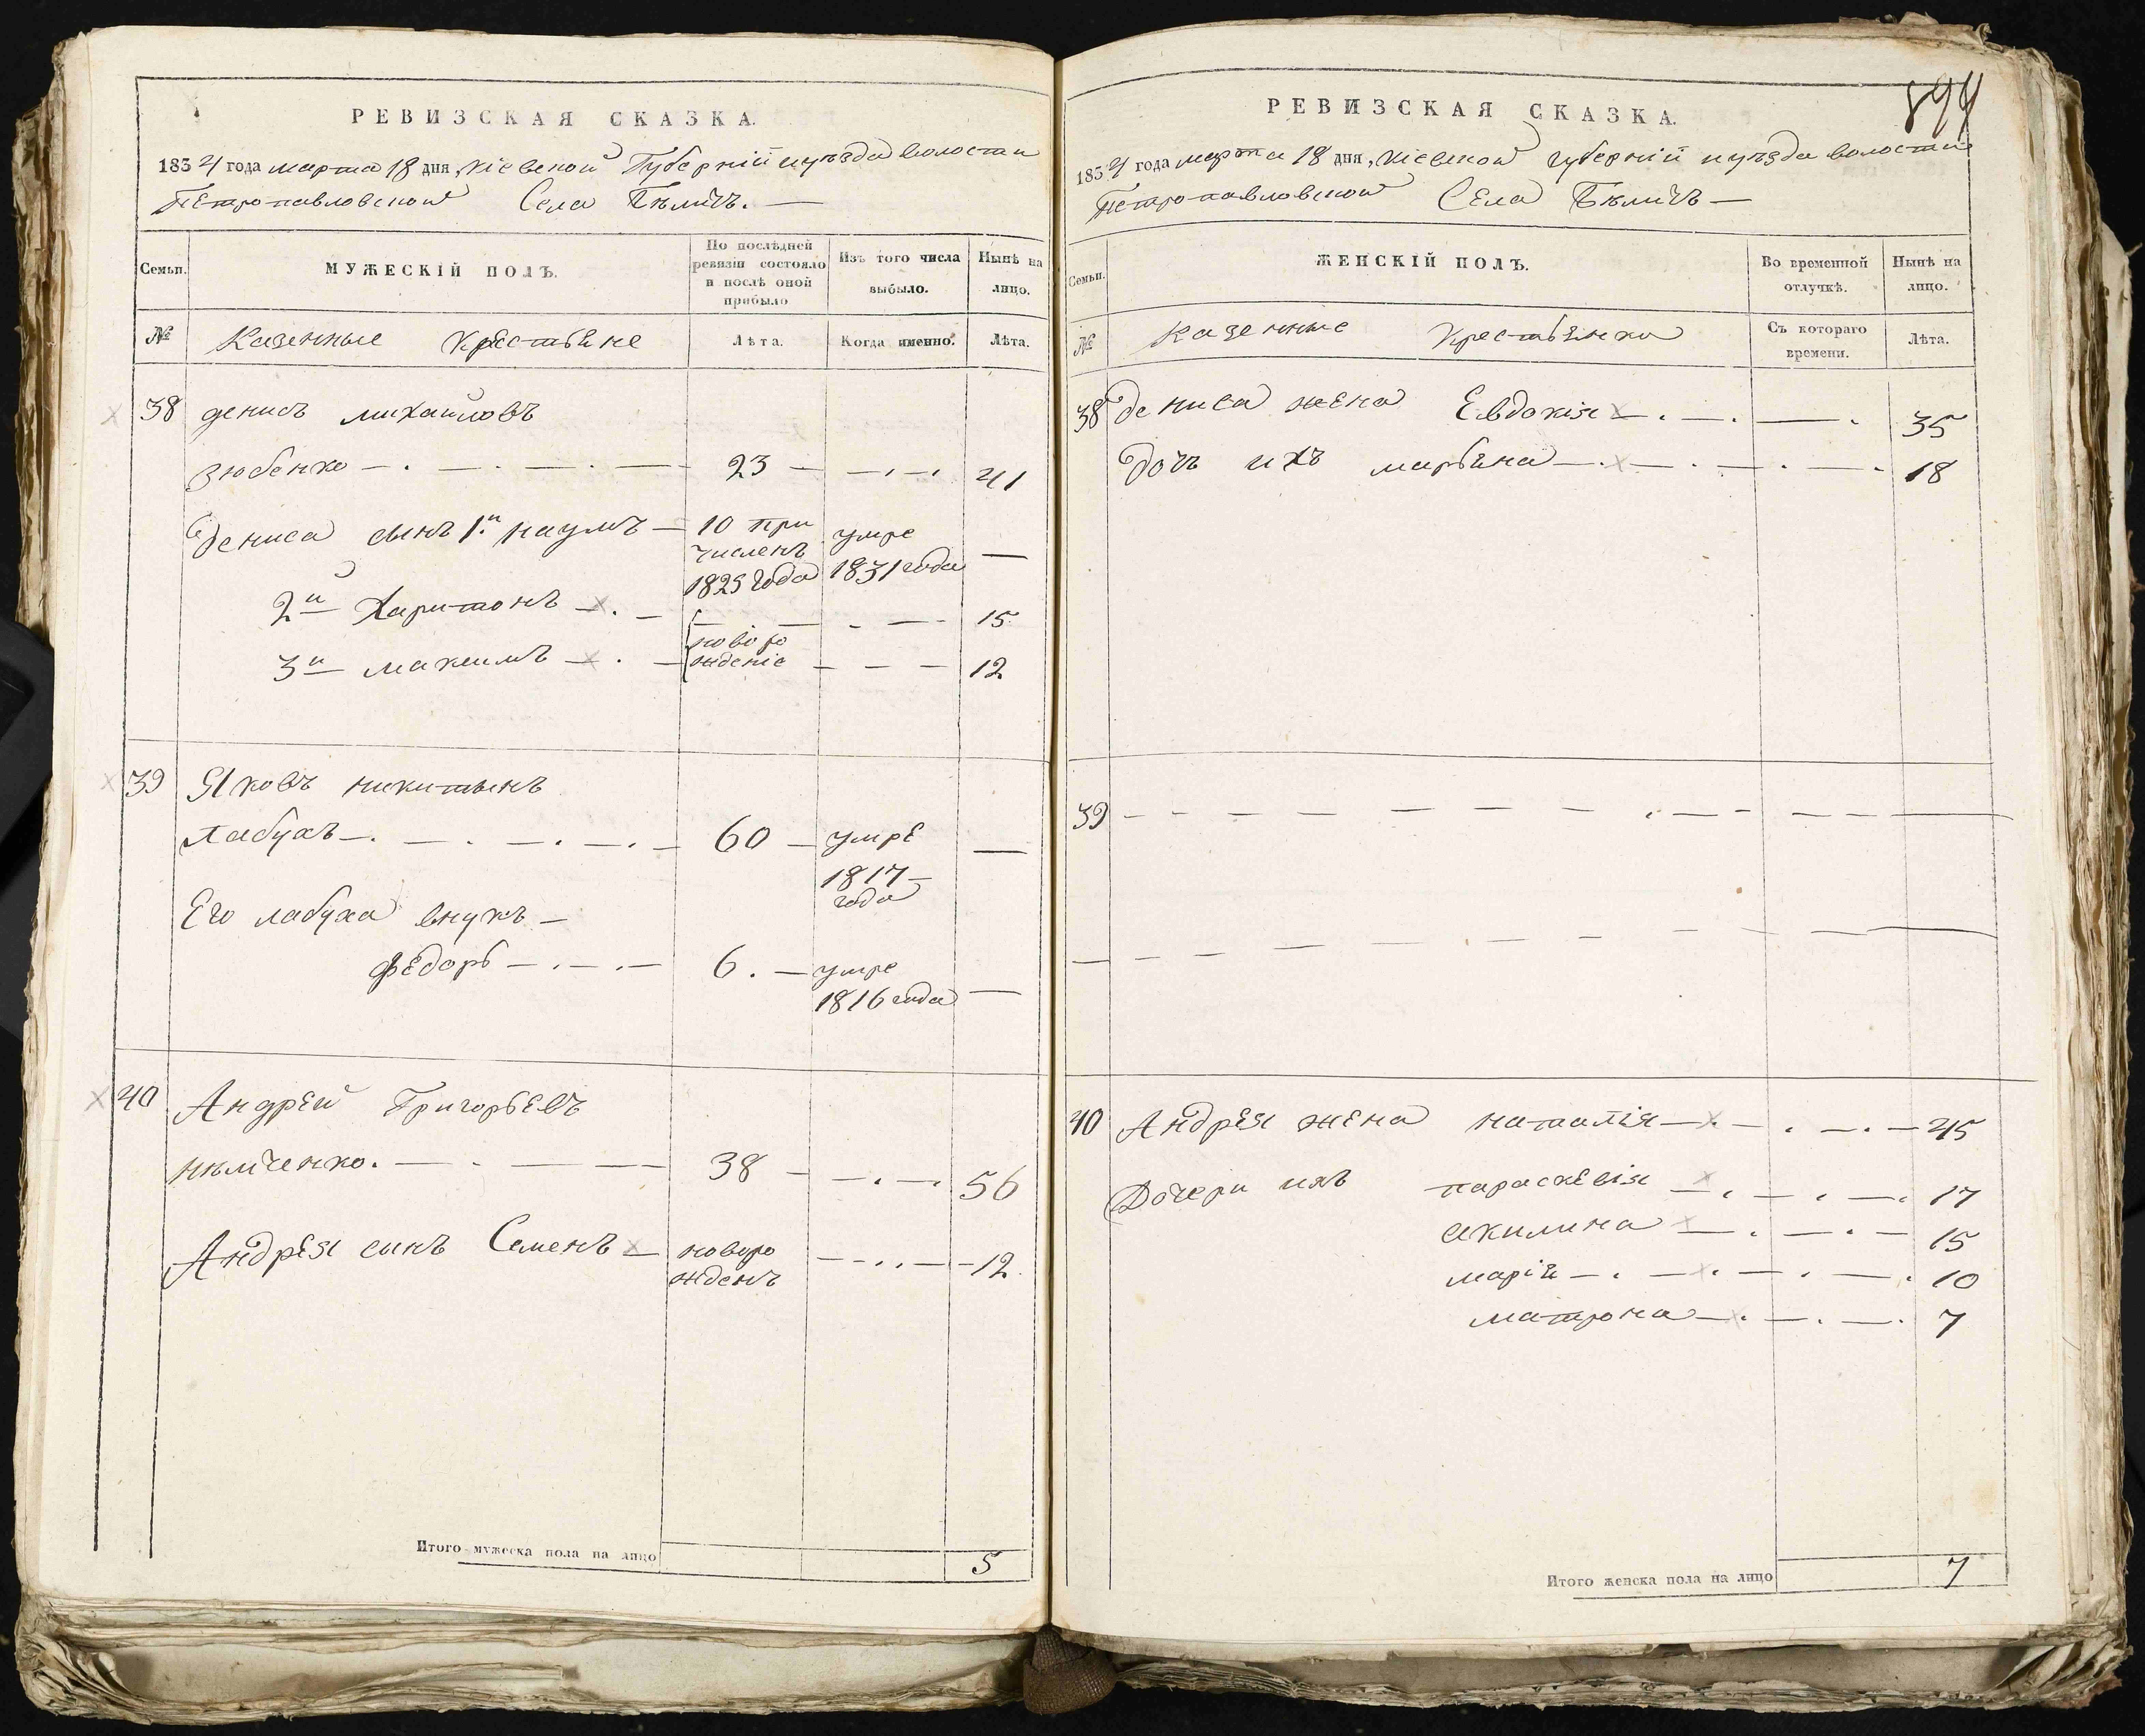 РЕВИЗСКАЯ СКАЗКА.
1834 года марта 18 дня, Кіевской Губерніи и уѣзда волости
Петропавловской Села Бѣличъ. —
Семьи.
МУЖЕСКІЙ ПОЛЪ.
По послѣдней ревизіи состояло и послѣ оной прибыло
Изъ того числа выбыло.
Нынѣ на лицо.
№ Казенные Крестьяне
Лѣта.
Когда именно.
Лѣта.
38 Денисъ Михайловъ
Зюбенко — 23 — 41
Дениса сынъ 1й Наумъ — 10 при
численъ
1825 года
умре
1831 года —
2й Харитонъ — 15
3й Максимъ — 12
новоро
жденіе
39 Яковъ Никитинъ
Лабухъ — 60 — умре —
1817
года
Его Лабуха внукъ —
Федоръ — 6. — умре
1816 года —
40 Андрей Григорьевъ
Нѣмченко. — 38 — 56
Андрея сынъ Семенъ — новоро
жденъ — 12
Итого мужеска пола на лицо 5
894
РЕВИЗСКАЯ СКАЗКА.
1834 года марта 18 дня, Кіевской губерніи и уѣзда волости
Петропавловской Села Бѣличъ —
Семьи.
ЖЕНСКІЙ ПОЛЪ.
Во временной отлучкѣ.
Нынѣ на лицо.
№ Казенные Крестьянки
Съ котораго времени.
Лѣта.
38 Дениса жена Евдокія — 35
Дочь ихъ Марьяна — 18
39 —
40 Андрея жена Наталія — 45
Дочери ихъ Параскевія — 17
Акилина — 15
Марія — 10
Матрона — 7
Итого женска пола на лицо 7